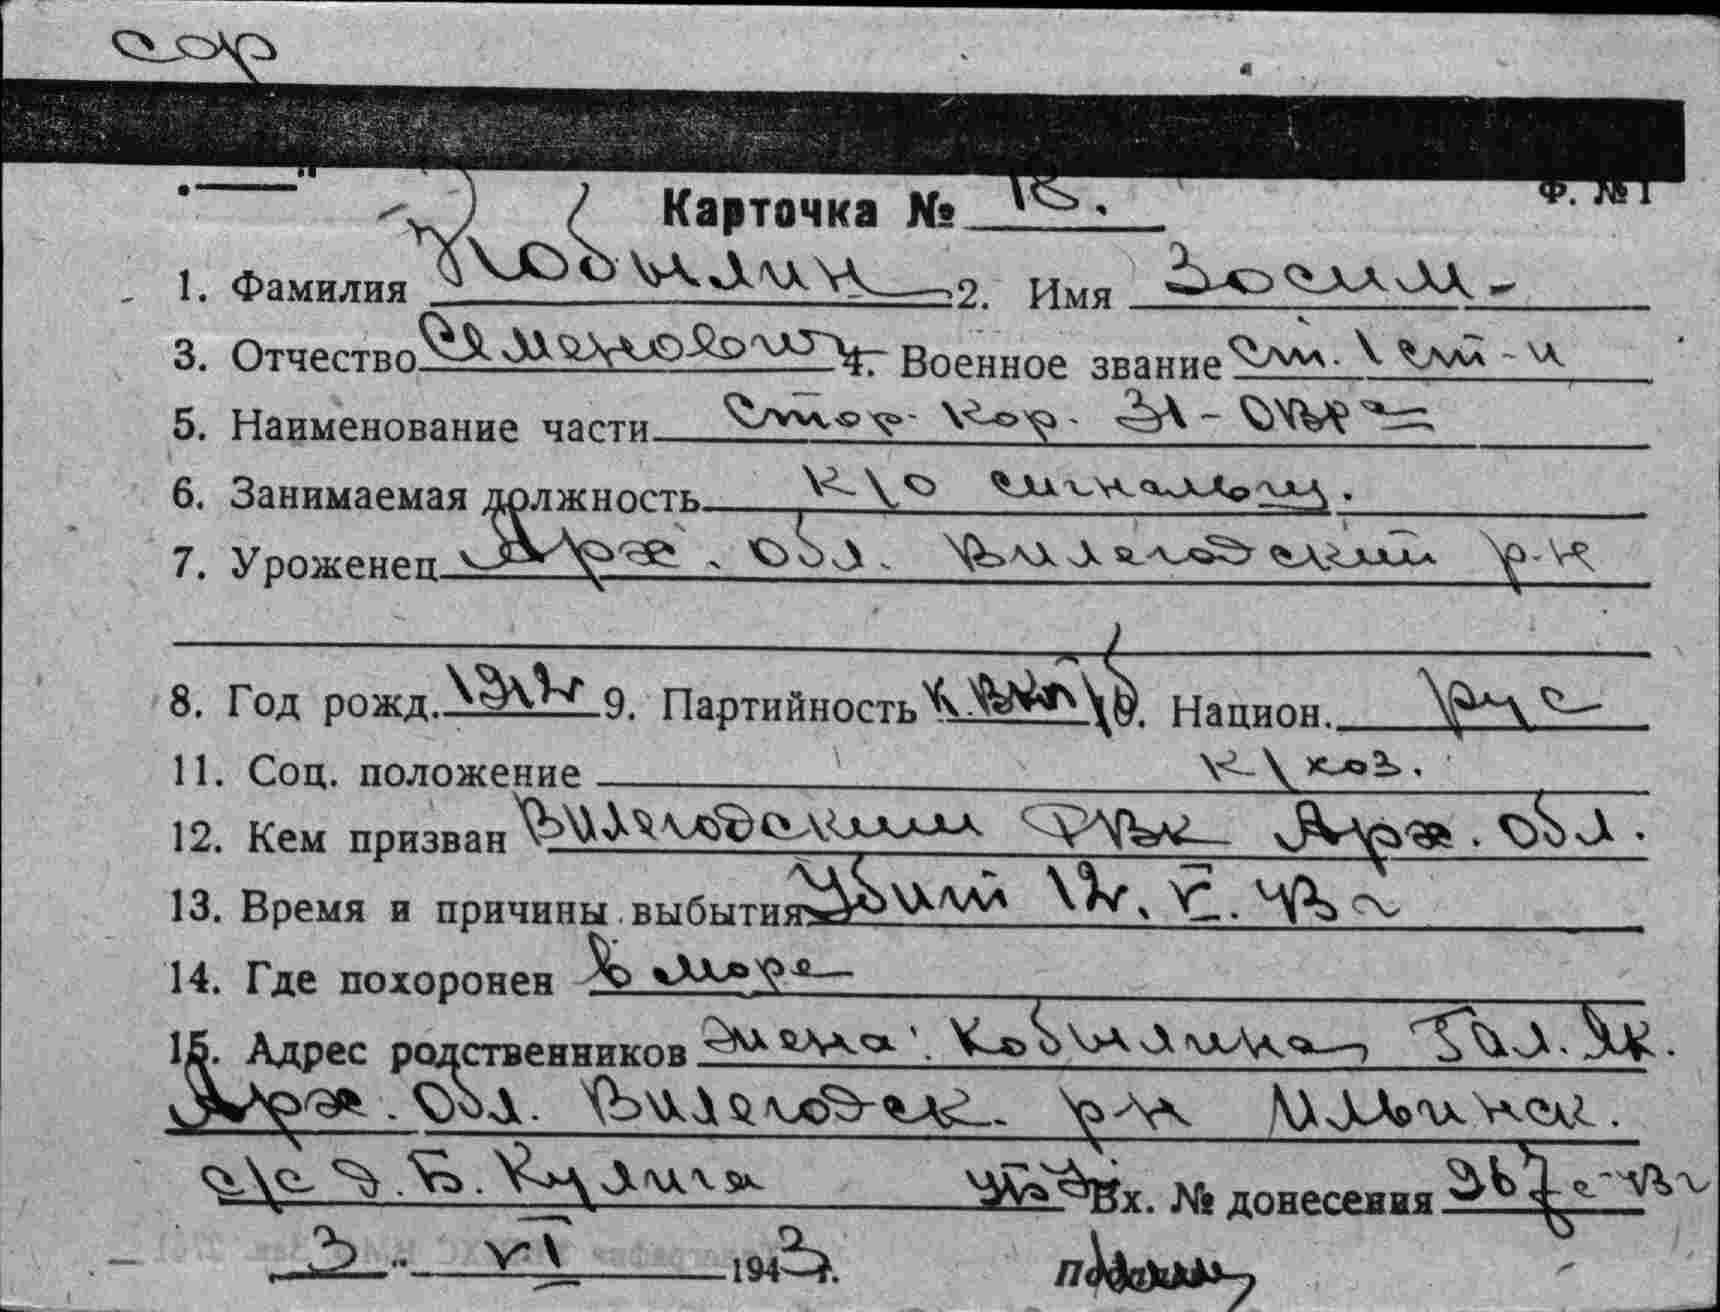 сор
Ф. № 1
Карточка № 18.
1. Фамилия Кобылин 2. Имя Зосим
3. Отчество Семенович 4. Военное звание Ст. 1 ст-и
5. Наименование части Стор. кор.
6. Занимаемая должность к/о сигнальщ.
7. Уроженец Арх. обл. Вилегодский р-н
8. Год рожд. 1912 9. Партийность к. ВКП/б 10. Национ. рус
11. Соц. положение к/хоз.
12. Кем призван Вилегодским РВК Арх. обл.
13. Время и причины выбытия Убит 12. V. 43 г
14. Где похоронен в море
15. Адрес родственников жена: Кобылина Гал. Як.
Арх. обл. Вилегодск. р-н Ильинск.
с/с д. Б. Кулига Вх. № донесения 367с-43г
3 " VI 1943 г. Подпись